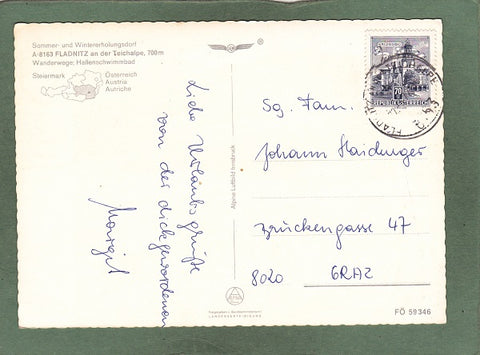 Sommer- und Wintererholungsdorf
A-8163 FLADNITZ an der Teichalpe, 700m
Wanderwege; Hallenschwimmbad
Steiermark
Österreich
Austria
Autriche
Liebe Urlaubsgrüße
von der dickgewordenen
Margit
Alpine Luftbild Innsbruck
REPUBLIK ÖSTERREICH
70
Sg. Fam.
Johann Haidinger
Brückengasse 47
8020 GRAZ
FÖ 59346